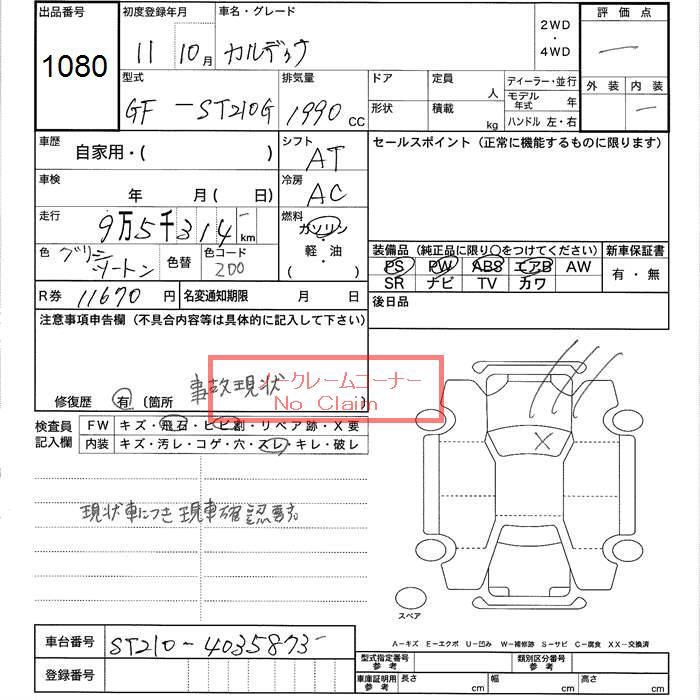 出品番号 初度登録年月 車名・グレード 評価点
1080
11 10月 カルディナ 2WD・4WD
型式 排気量 ドア 定員 人 ディーラー・並行 外装 内装
GF-ST210G 1990 CC 形状 積載 kg モデル年式 年
ハンドル 左・右
車歴 自家用・( ) シフト AT セールスポイント(正常に機能するものに限ります)
車検 年 月( 日) 冷房 AC
走行 9万5千314 km 燃料 ガソリン・軽・油・( )
色 グリーンツートン 色替 色コード 2D0
装備品(純正品に限り○をつけてください) 新車保証書
PS PW ABS エアB AW 有・無
SR ナビ TV カワ
R券 11670円 名変通知期限 月 日 後日品
注意事項申告欄(不具合内容等は具体的に記入して下さい)
事故現状
ノークレームコーナー
No Claim
修復歴 有 (箇所 )
検査員記入欄 FW キズ・飛石・ヒビ割・リペア跡・X要
内装 キズ・汚レ・コゲ・穴・スレ・キレ・破レ
X
現状車につき現車確認要す
スペア
車台番号 ST210-4035873-
A-キズ E-エクボ U-凹み W-補修跡 S-サビ C-腐食 XX-交換済
登録番号
型式指定番号 参考 類別区分番号 参考
車庫証明用 参考 長さ cm 幅 cm 高さ cm